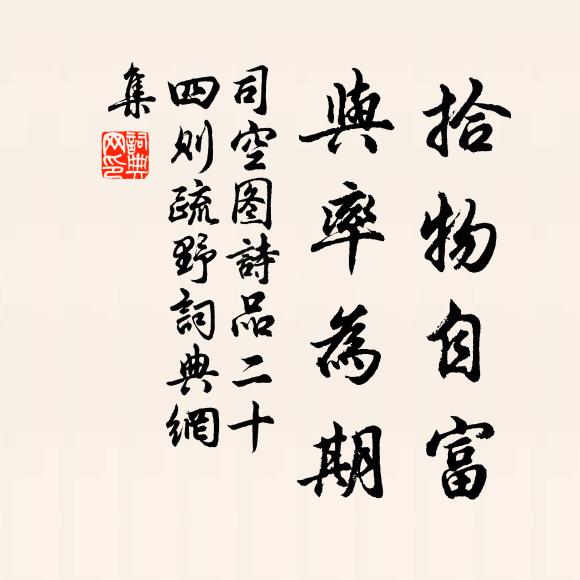 拾物自富
與率為期
司空图詩品二十
四则疏野詞典網
集
詞典
网印